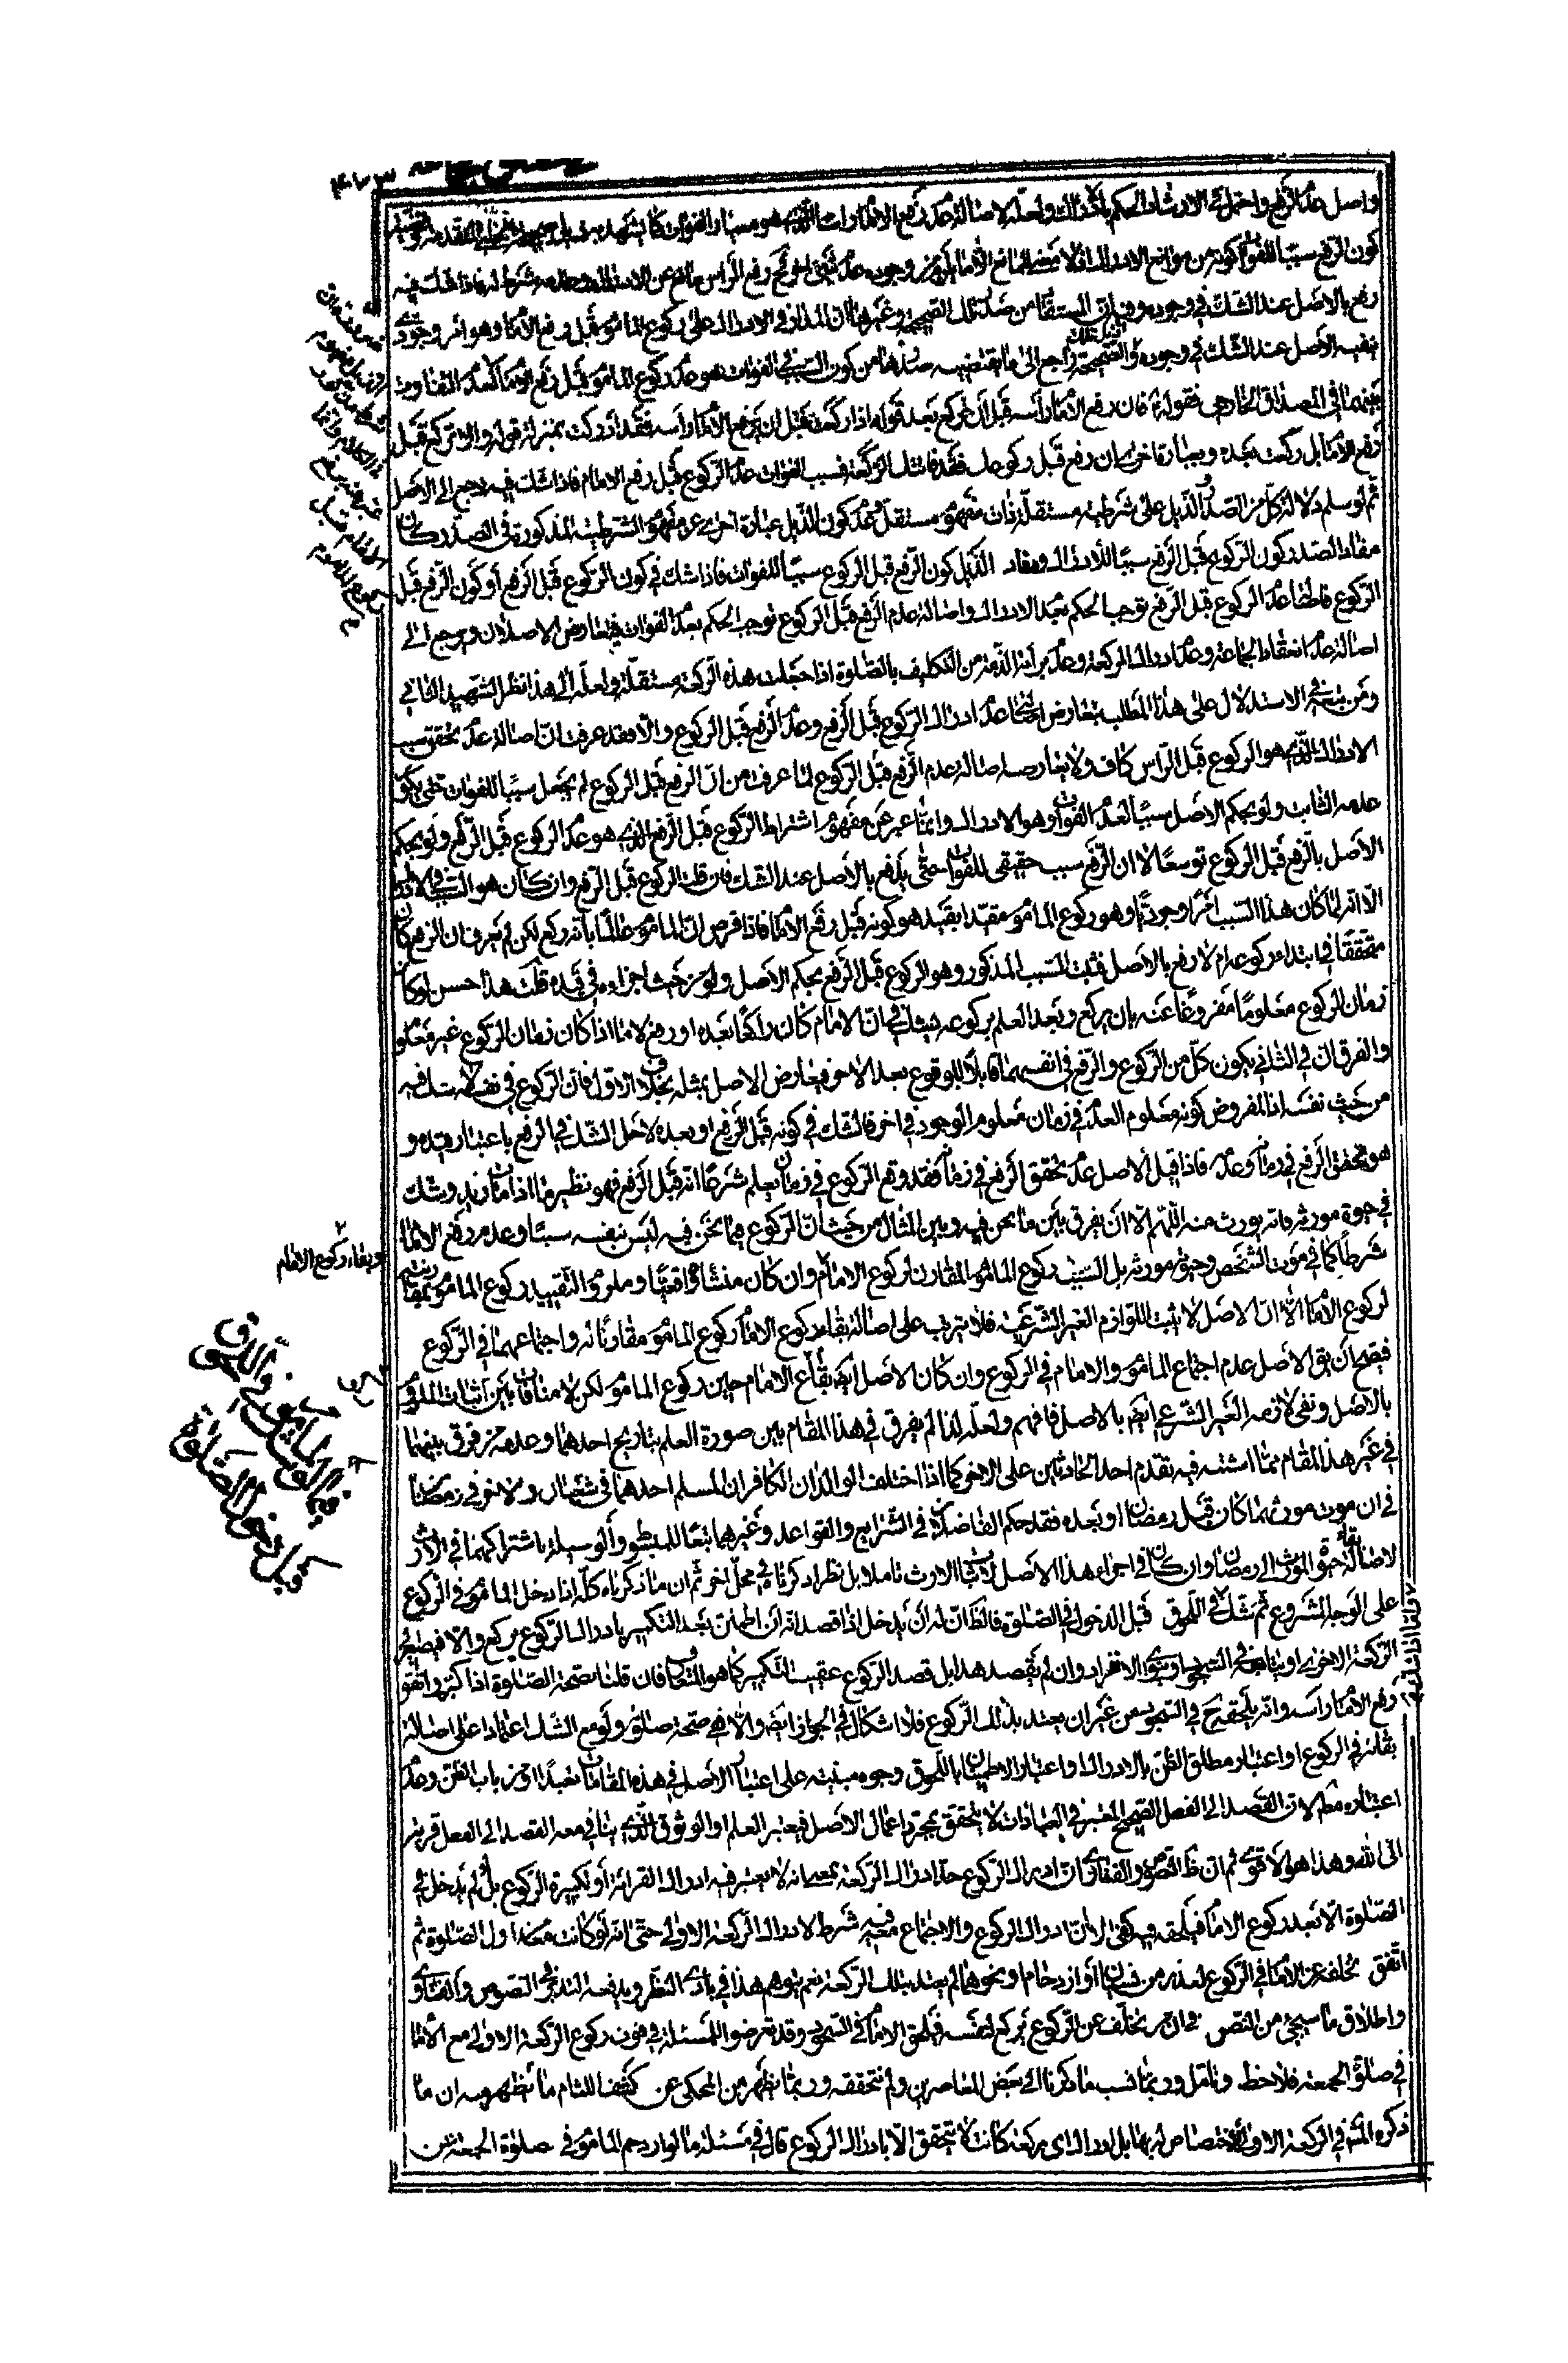 واصل عدم الرفع واحتمل في الارشاد الحكم بالادراك ولعله لاصالة عدم رفع الامام رأسه الذي هو سبب الفوات كما يشهد به
كون الرفع سببا للفوات كونه من موانع الادراك اذ لا معنى للمانع الا ما يلزم من وجوده عدم شئ فرفع الرأس مانع عن الادراك وعدمه شرط له فاذا شك فيه
رفع بالاصل عند الشك في وجوده وفيه ان المستفاد من صدر تلك الصحيحة وغيرها ان المدار في الادراك على ركوع الماموم قبل رفع الامام وهو امر وجودي
ينفيه الاصل عند الشك في وجوده وذيل تلك الصحيحة راجع الى ما يقتضيه صدرها من كون السبب في الفوات هو عدم ركوع الماموم قبل رفع الامام لعدم التفاوت
بينهما في المصداق الخارجي فقوله فان رفع الامام رأسه قبل ان تركع بعد قوله اذا ركعت قبل ان يرفع الامام رأسه فقد ادركت بمنزلة قوله والا تركع قبل
رفع الامام بل ركعت بعده وبعبارة اخرى ان رفع قبل ركوعك فقد فاتتك الركعة فسبب الفوات عدم الركوع قبل رفع الامام فاذا شك فيه رجع الى الاصل
ثم لو سلم دلالة كل من الصدر والذيل على شرطية مستقلة ذات مفهوم مستقل وعدم كون الذيل عبارة اخرى عن مفهوم الشرطية المذكورة في الصدر كان
مفاد الصدر كون الركوع قبل الرفع سببا للادراك ومفاد الذيل كون الرفع قبل الركوع سببا للفوات فاذا شك في كون الركوع قبل الرفع أو كون الرفع قبل
الركوع فاصالة عدم الركوع قبل الرفع توجب الحكم بعدم الادراك واصالة عدم الرفع قبل الركوع توجب الحكم بعدم الفوات فيتعارض الاصلان ويرجع الى
اصالة عدم انعقاد الجماعة وعدم ادراك الركعة وعدم برائة الذمة من التكليف بالصلوة اذا جعلت هذه الركعة مستقلة ولعله الى هذا نظر الشهيد الثاني
ومن تبعه في الاستدلال على هذا المطلب بتعارض اصالتي عدم ادراك الركوع قبل الرفع وعدم الرفع قبل الركوع والا فقد عرفت ان اصالة عدم تحقق سبب
الادراك الذي هو الركوع قبل الرأس كاف ولا يعارضه اصالة عدم الرفع قبل الركوع لما عرفت من ان الرفع قبل الركوع لم يجعل سببا للفوات حتى يكون
عدمه الثابت ولو بحكم الاصل سببا لعدم الفوات وهو الادراك وانما عبر عن مفهوم اشتراط الركوع قبل الرفع الذي هو عدم الركوع قبل الرفع ولو بحكم
الاصل بالرفع قبل الركوع توسعا لا ان الرفع سبب حقيقي للفوات حتى يدفع بالاصل عند الشك فان قلت الركوع قبل الرفع وان كان هو السبب في الادراك
الا انه لما كان هذا السبب امرا وجوديا وهو ركوع الماموم مقيدا بقيد هو كونه قبل رفع الامام فاذا فرض ان الماموم عالما بانه ركع لكن لم يعرف ان الرفع كان
متحققا في ابتداء ركوعه ام لا رفع بالاصل فثبت السبب المذكور وهو الركوع قبل الرفع بحكم الاصل ولو من حيث اجزائه في قيده قلت هذا حسن لو كان
زمان الركوع معلوما مفروغا عنه بان يركع وبعد العلم بركوعه يشك في ان الامام كان راكعا بعده او رفع لا ما اذا كان زمان الركوع غير معلوم
والفرق ان في الثاني يكون كل من الركوع والرفع في انفسهما قابلا للوقوع بعد الاخر فيعارض الاصل بمثله بخلاف الاول فان الركوع في نفسه لا شك فيه
من حيث نفسه اذ المفروض كونه معلوم العدم في زمان معلوم الوجود في اخر فالشك في كونه قبل الرفع او بعده لاجل الشك في الرفع باعتبار قيده و
هو تحقق الرفع في زمان وعدمه فاذا قيل الاصل عدم تحقق الرفع في زمان فقد وقع الركوع في زمان يعلم شرعا انه قبل الرفع فهو نظير ما اذا مات زيد وشك
في حيوة مورثه فانه يورث منه اللهم الا ان يفرق بين ما نحن فيه وبين المثال من حيث ان الركوع فيما نحن فيه ليس بنفسه سببا وعدم رفع الامام
شرطا كما في موت الشخص وحيوة مورثه بل السبب ركوع الماموم المقارن لركوع الامام وان كان منشأ واقعيا وملزوم التقييد ركوع الماموم بمقارنته
لركوع الامام الا ان الاصل لا يثبت اللوازم الغير الشرعية فلا يترتب على اصالة بقاء ركوع الامام ركوع الماموم مقارنا له واجتماعهما في الركوع
فيصح ان يق الاصل عدم اجتماع الماموم والامام في الركوع وان كان الاصل ايضا بقاء الامام حين ركوع الماموم لكن لا منافاة بين اثبات الملزوم
بالاصل ونفي لازمه الغير الشرعي ايضا بالاصل فافهم ولعله لذا لم يفرق في هذا المقام بين صورة العلم بتاريخ احدهما وعدمه من فرق بينهما
في غير هذا المقام مما اشتبه فيه تقدم احد الحادثين على الاخر كما اذا اختلف الوالدان الكافران المسلم احدهما في شعبان والاخر في رمضان
في ان موت مورثهما كان قبل رمضان او بعده فقد حكم الفاضلان في الشرايع والقواعد وغيرهما تبعا للمبسوط والوسيلة باشتراكهما في الارث
لاصالة بقاء حيوة المورث الى رمضان وان كان في اجراء هذا الاصل لاثبات الارث تاملا بل نظر ذكرناه في محل اخر ثم ان ما ذكرناه كله اذا دخل الماموم في الركوع
على الوجه المشروع ثم شك في اللحوق قبل الدخول في الصلوة فالظ ان له ان يدخل اذا قصد انه ان اطمئن بعد التكبير بادراك الركوع يركع والا فينتظر
الركعة الاخرى او يتابعه في السجود او ينوي الانفراد وان لم يقصد هذا بل قصد الركوع عقيب التكبير كما هو المتعارف فان قلنا بصحة الصلوة اذا كبر واتفق
رفع الامام رأسه وانه يلحقه في السجود من غير ان يعتد بذلك الركوع فلا اشكال في الجواز ايضا والا ففي صحة صلوته ولو مع الشك اعتمادا على اصالة
بقائه في الركوع او اعتبار مطلق الظن بالادراك او اعتبار الاطمينان باللحوق وجوه مبنية على اعتبار الاصل في هذه المقامات تعبدا او من باب الظن وعدم
اعتباره مط لان القصد الى الفعل الصحيح المعتبر في العبادات لا يتحقق بمجرد اعمال الاصل فيعتبر العلم او الوثوق الذي يتاتى معه القصد الى الفعل قربة
الى الله وهذا هو الاقوى ثم ان ظ النصوص والفتاوى ان ادراك الركوع حد ادراك الركعة بمعنى انه لا يعتبر فيه ادراك القرائة او تكبيرة الركوع بل لو لم يدخل في
الصلوة الا بعد ركوع الامام فيلحقه فيه كفى لا ان ادراك الركوع والاجتماع معه فيه شرط لادراك الركعة الاولى حتى انه لو كانت معه اول الصلوة ثم
اتفق تخلفه عن الامام في الركوع لعذر من نسيان او ازدحام او نحوهما لم يعتد بتلك الركعة نعم يتوهم هذا في بادى النظر ويدفعه التدبر في النصوص والفتاوى
واطلاق ما سيجئ من النص في ان من تخلف عن الركوع يركع لنفسه فيلحق الامام في السجود وقد تعرضوا للمسئلة في فوت ركوع الركعة الاولى مع الامام
في صلوة الجمعة فلاحظ وتامل وربما نسب ما ذكرنا الى بعض المعاصرين ولم نتحققه وربما يظهر من المحكي عن كشف اللثام ما يظهر منه ان ما
ذكره المص في الركعة الاولى لا اختصاص له بها بل ادراك اي ركعة كانت لا يتحقق الا بادراك الركوع قال في مسئلة ما لو ازدحم الماموم في صلوة الجمعة عن
وبقاء ركوع الامام
فيما لو شك الماموم في اللحوق
قبل دخول الصلوة
واما اذا شك